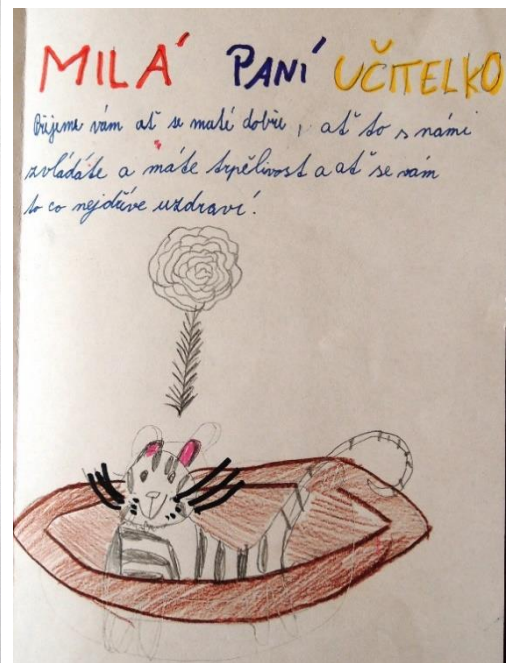 MILÁ PANÍ UČITELKO
Přejeme vám ať se máté dobře, ať to s námi
zvládáte a máte trpělivost a ať se vám
to co nejdříve uzdraví!